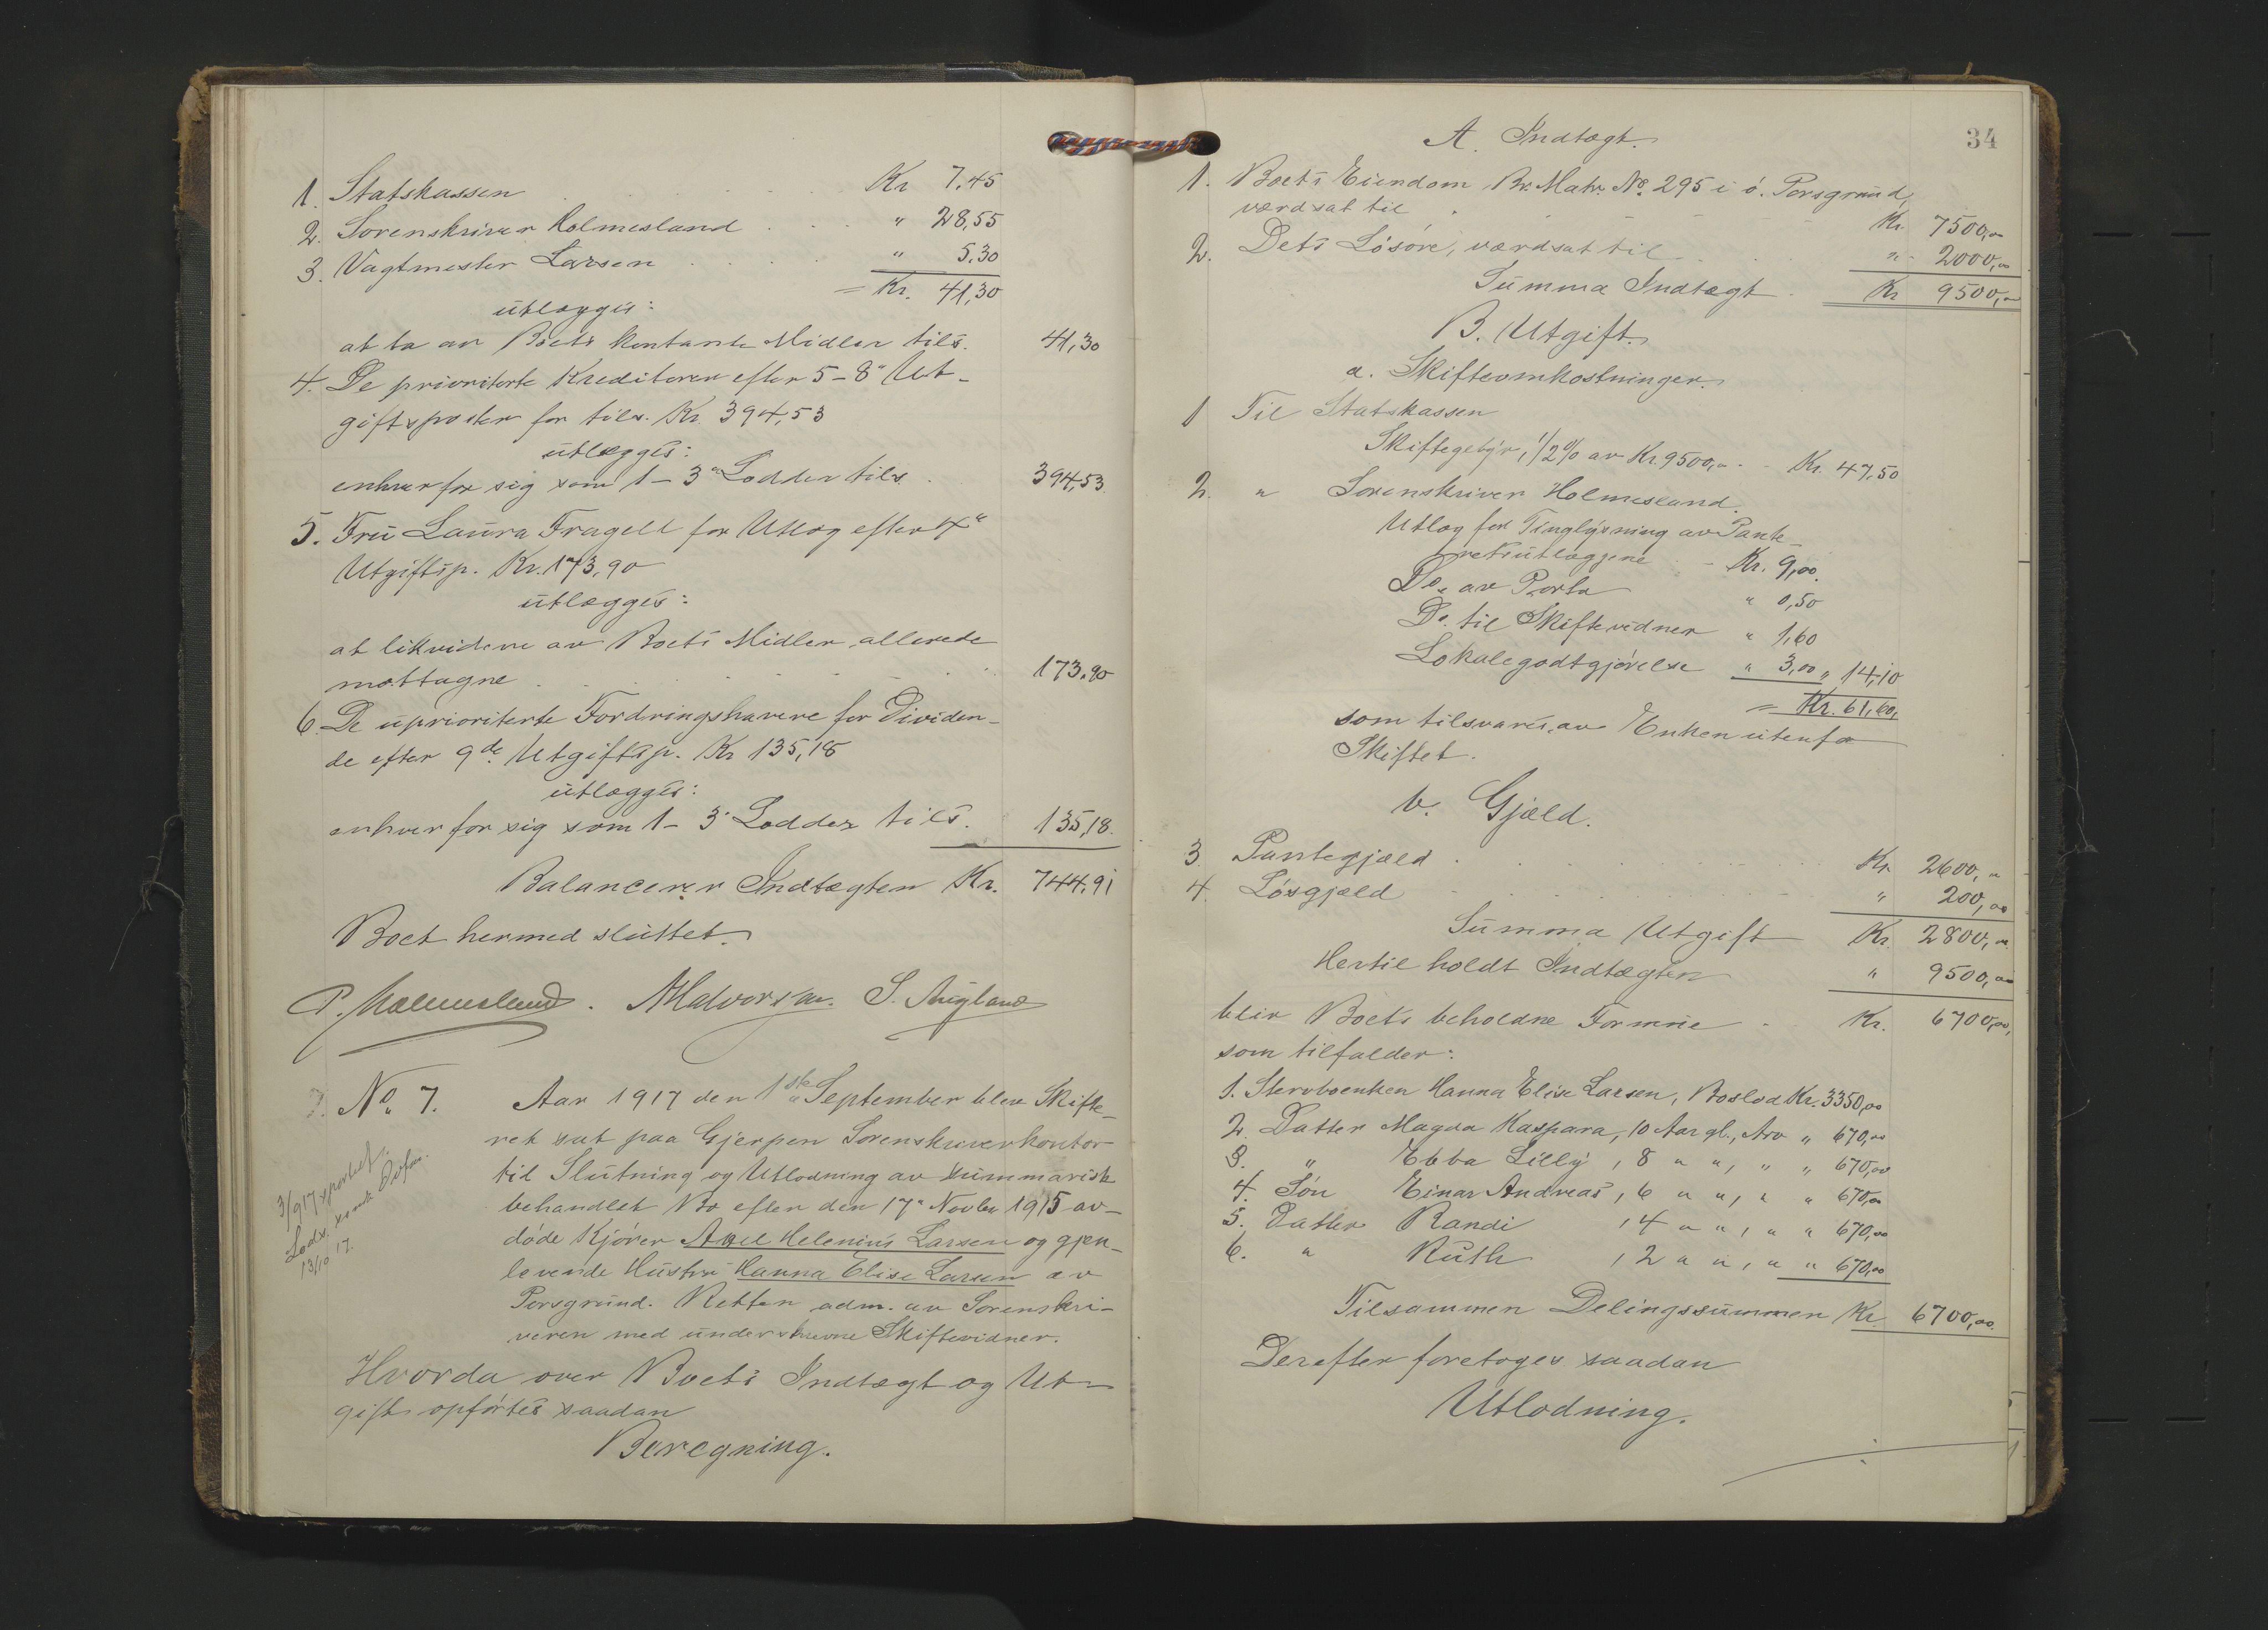 1. Statskassen . . . Kr 7,45
2. Sorenskriver Holmesland . . . " 28,55
3. Vagtmester Larsen . . . " 5,30
= Kr. 41,30
utlægges:
at ta av Boets kontante Midler tils. 41,30
4. De prioriterte Kreditorer efter 5-8" Ut-
giftsposter for tils. Kr. 394,53
utlægges:
enhver for sig som 1-3" Lodder tils. 394,53
5. Fru Laura Fragell for Utlæg efter 4"
Utgiftsp. Kr. 173,90
utlægges:
at likvidere av Boets Midler allerede
mottagne . . . 173,90
6. De uprioriterte Fordringshavere for Dividen-
de efter 9de Utgiftsp. Kr 135,18
utlægges:
enhver for sig som 1-3" Lodder tils. 135,18
Balancerer Indtægten Kr. 744,91
Boet hermed sluttet.
P. Holmesland. AHalvorsen. S. Augland
No. 7. Aar 1917 den 1ste September blev Skifte-
ret sat paa Gjerpen Sorenskriverkontor
til Slutning og Utlodning av summarisk
behandlet Bo efter den 17" Novbr 1915 av-
døde Kjører Axel Helenius Larsen og gjen-
levende Hustru Hanna Elise Larsen av
Porsgrund. Retten adm. av Sorenskri-
veren med underskrevne Skiftevidner.
3/9 17
13/10 17.
Hvorda over Boets Indtægt og Ut-
gift opførtes saadan
Beregning.
34
A. Indtægt.
1. Boets Eiendom Br. Matr. No. 295 i ø. Porsgrund,
værdsat til . . . Kr. 7500,00
2. Dets Løsøre, værdsat til . . . " 2000,00
Summa Indtægt . Kr 9500,00
B. Utgift.
a. Skifteomkostninger.
1 Til Statskassen
Skiftegebyr, 1/2% av Kr. 9500,00 . - Kr. 47,50
2. " Sorenskriver Holmesland.
Utlæg for Tinglysning av Pante-
retsutlæggene . - Kr. 9,00.
Do. av Porto " 0,50
Do. til Skiftevidner " 1,60
Lokalegodtgjørelse " 3,00 " 14,10
= Kr. 61,60,
som tilsvares av Enken utenfor
Skiftet.
b. Gjæld.
3. Pantegjæld . . . Kr. 2600,00
4. Løsgjæld . . . " 200,00
Summa Utgift Kr. 2800,00
Hertil holdt Indtægten " 9500,00
blir Boets beholdne Formue . Kr. 6700,00,
som tilfalder:
1. Stervboenken Hanna Elise Larsen, Boslod Kr. 3350,00
2. Datter Magda Kaspara, 10 Aar gl., Arv " 670,00
3. " Ebba Lilly, 8 " ", " " 670,00
4. Søn Einar Andreas, 6 " ", " " 670,00
5. Datter Randi, 4 " ", " " 670,00
6. " Ruth, 2 " ", " " 670,00
Tilsammen Delingssummen Kr. 6700,00.
Derefter foretoges saadan
Utlodning.